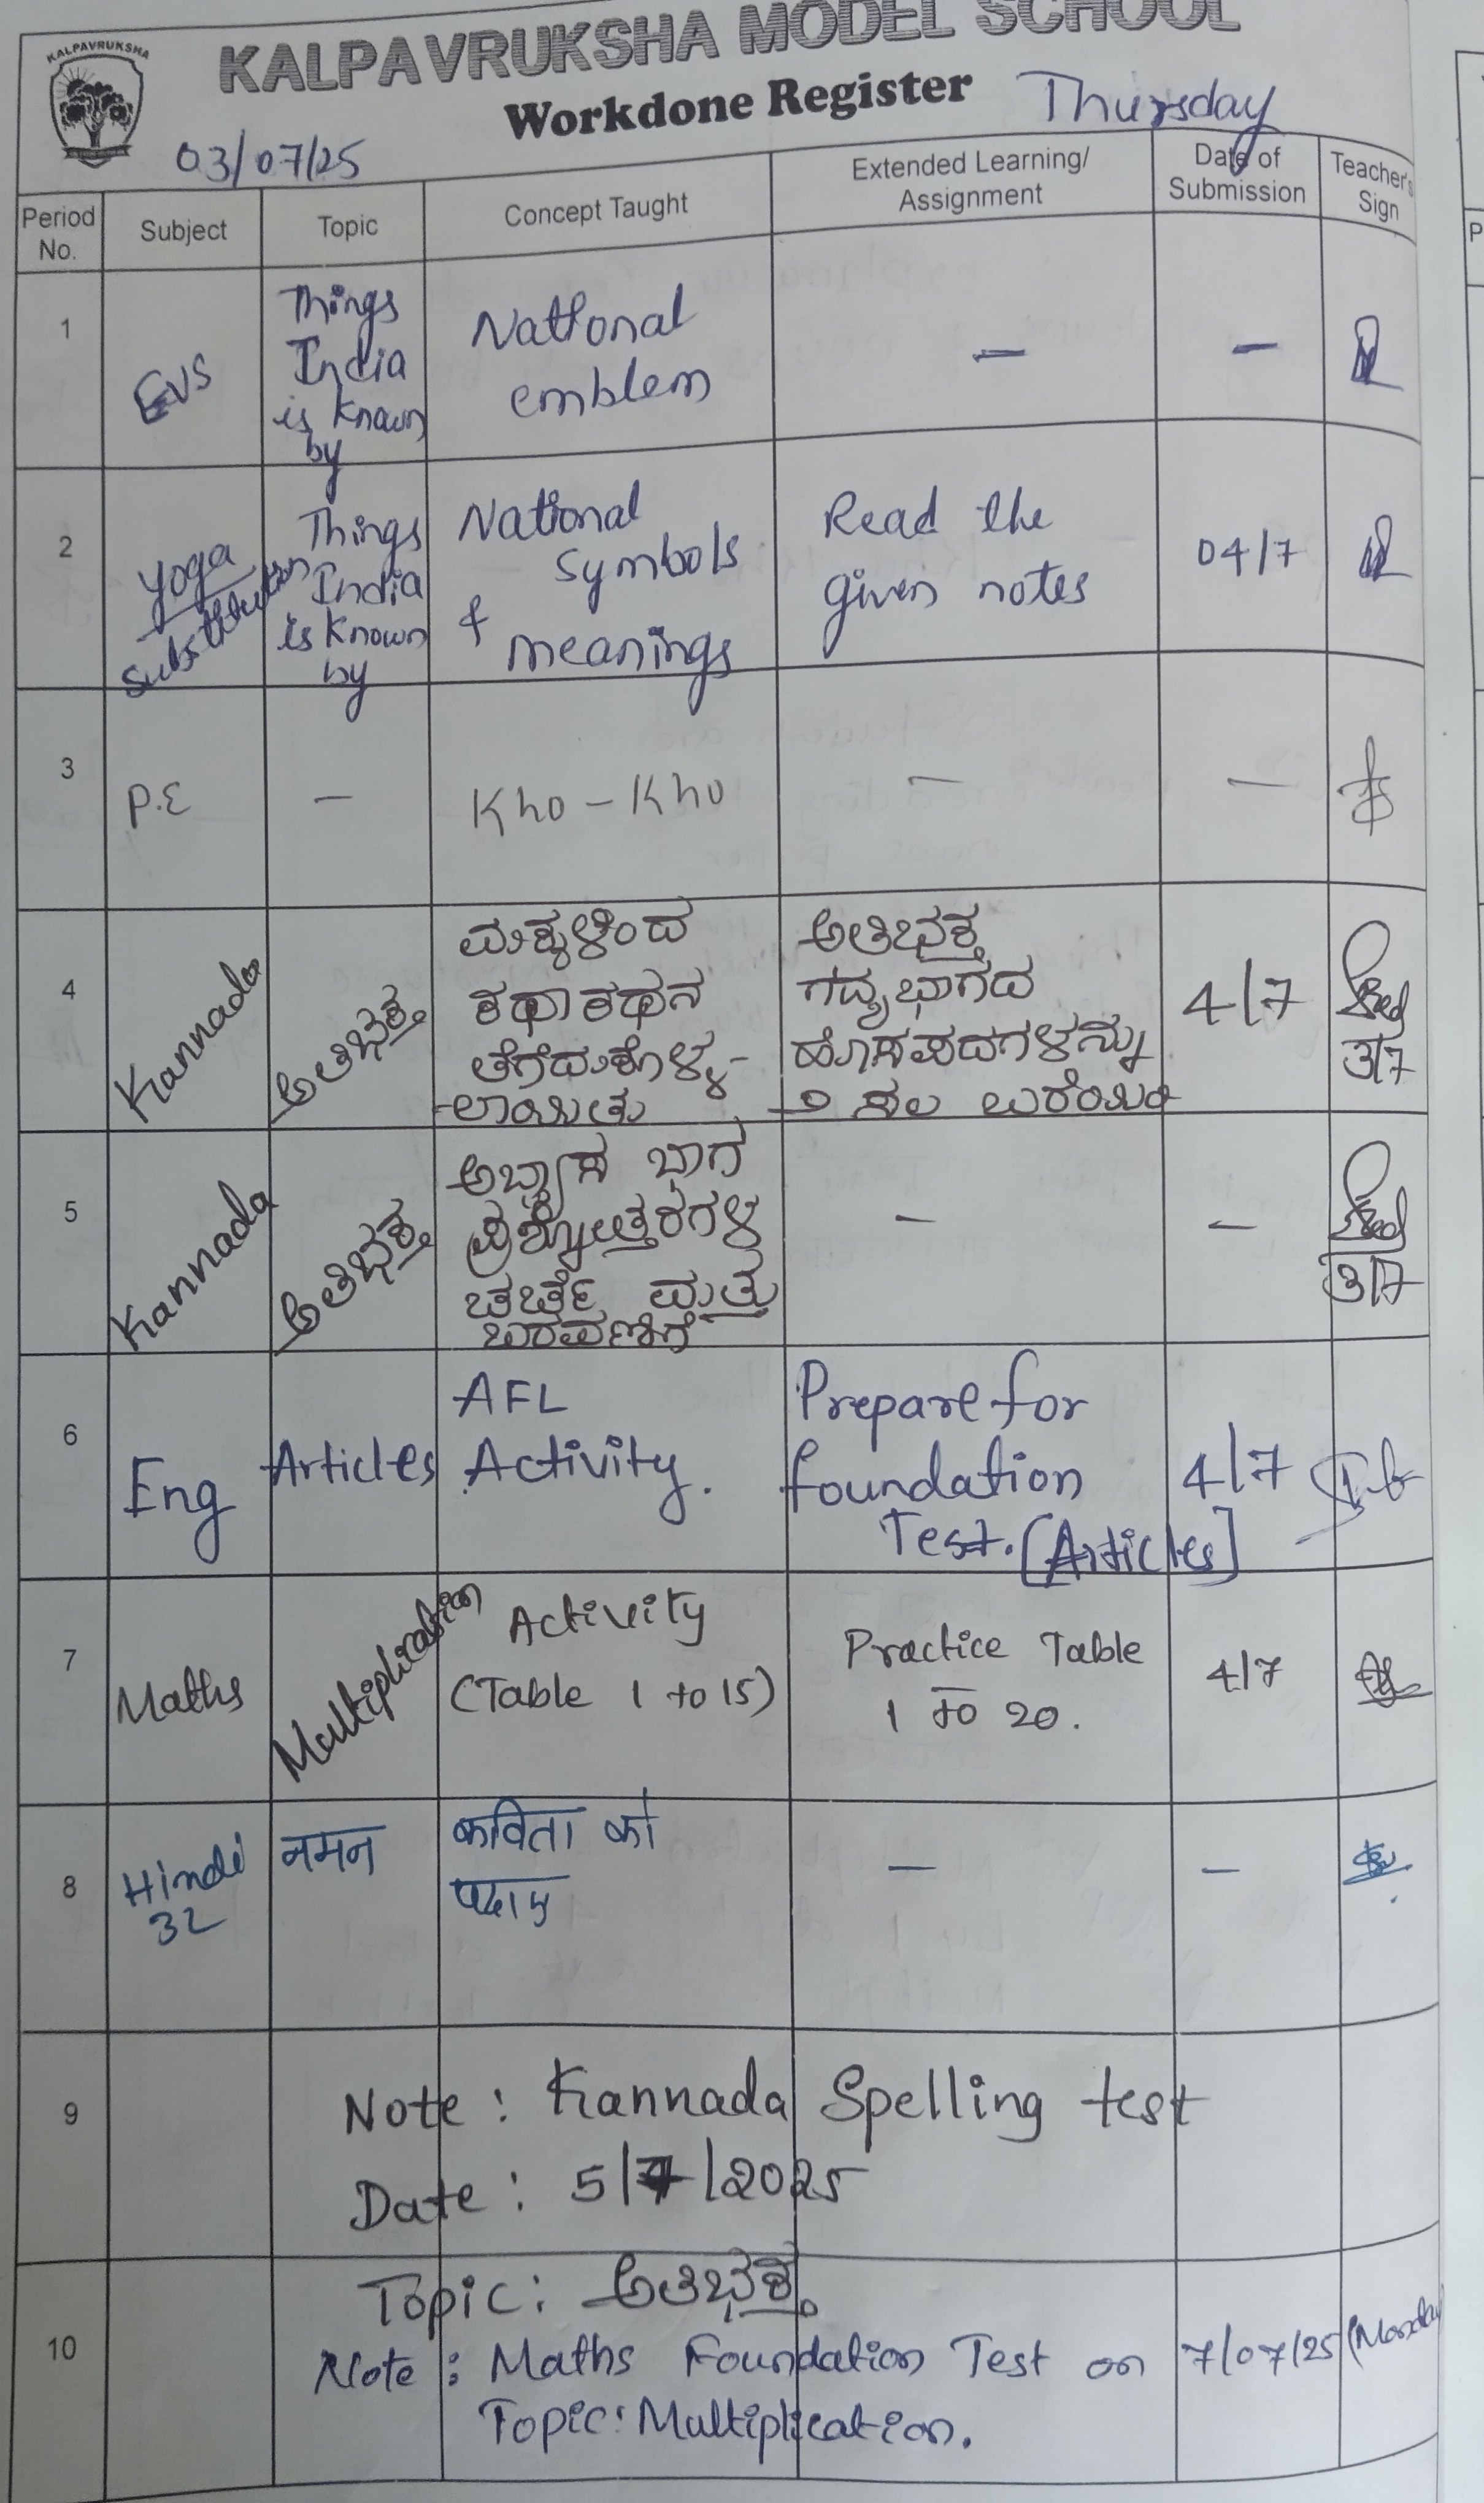 KALPAVRUKSHA
KALPAVRUKSHA MODEL SCHOOL
Workdone Register
Thursday
03/07/25
Period No.
Subject
Topic
Concept Taught
Extended Learning/ Assignment
Date of Submission
Teacher's Sign
1
EVS
Things
India
is known
by
National
emblem
—
—
2
Yoga
substitution
Things
India
is known
by
National
symbols
& meanings
Read the
given notes
04/7
3
P.E
—
Kho - Kho
—
—
4
Kannada
ಅತಿಭಕ್ತ
ಮಕ್ಕಳಿಂದ
ಕಥಾಕಥನ
ತೆಗೆದುಕೊಳ್ಳ-
-ಲಾಯಿತು
ಅತಿಭಕ್ತ
ಗದ್ಯಭಾಗದ
ಹೊಸಪದಗಳನ್ನು
೨ ಸಲ ಬರೆಯಿರಿ
4/7
3/7
5
Kannada
ಅತಿಭಕ್ತ
ಅಭ್ಯಾಸ ಭಾಗ
ಪ್ರಶ್ನೋತ್ತರಗಳ
ಚರ್ಚೆ ಮತ್ತು
ಬರವಣಿಗೆ
—
—
3/7
6
Eng
Articles
AFL
Activity.
Prepare for
foundation
Test. [Articles]
4/7
7
Maths
Multiplication
Activity
(Table 1 to 15)
Practice Table
1 to 20.
4/7
8
Hindi
32
नमन
कविता को
—
—
9
Note : Kannada Spelling test
Date : 5/7/2025
10
Topic : ಅತಿಭಕ್ತ
Note : Maths Foundation Test on 7/07/25 (Monday
Topic: Multiplication.